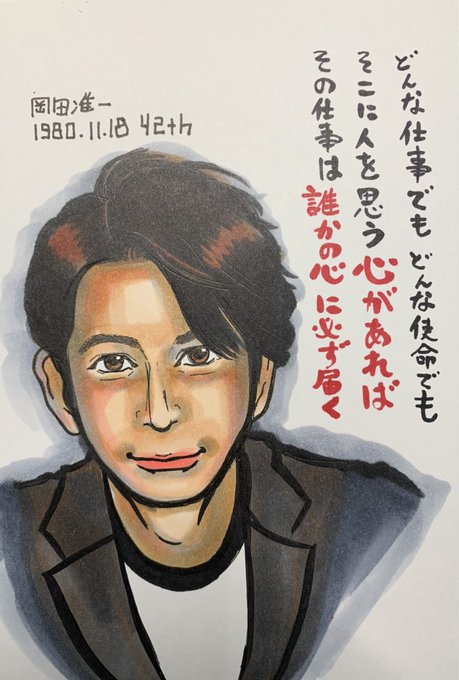 どんな仕事でも どんな使命でも
そこに人を思う心があれば
その仕事は誰かの心に必ず届く
岡田准一
1980.11.18 42th